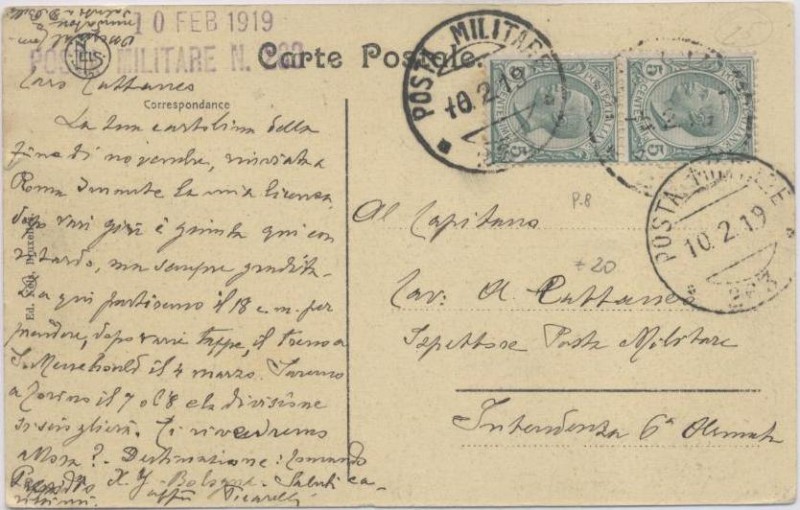 10 FEB 1919
POSTA MILITARE N.
Carte Postale
Correspondance
Caro Cattaneo
La tua cartolina della
fine di novembre, rinviata a
Roma durante la mia licenza
dopo vari giri è giunta qui con
ritardo, ma sempre gradita.
Da qui partiremo il 18 c.m. per
prendere, dopo varie tappe, il treno a
il 4 marzo. Saremo
a Torino il 7 o l'8 e la divisione
si scioglierà. Ci rivedremo
allora? - Destinazione: Comando
Bologna. Saluti ca-
rissimi.
POSTA MILITARE
10.2.19
5 5
5 5
POSTA MILITARE
10.2.19
P.8
+20
Al Capitano
Cav: A. Cattaneo
Ispettore Posta Militare
Intendenza 6ª Armata
Ed.